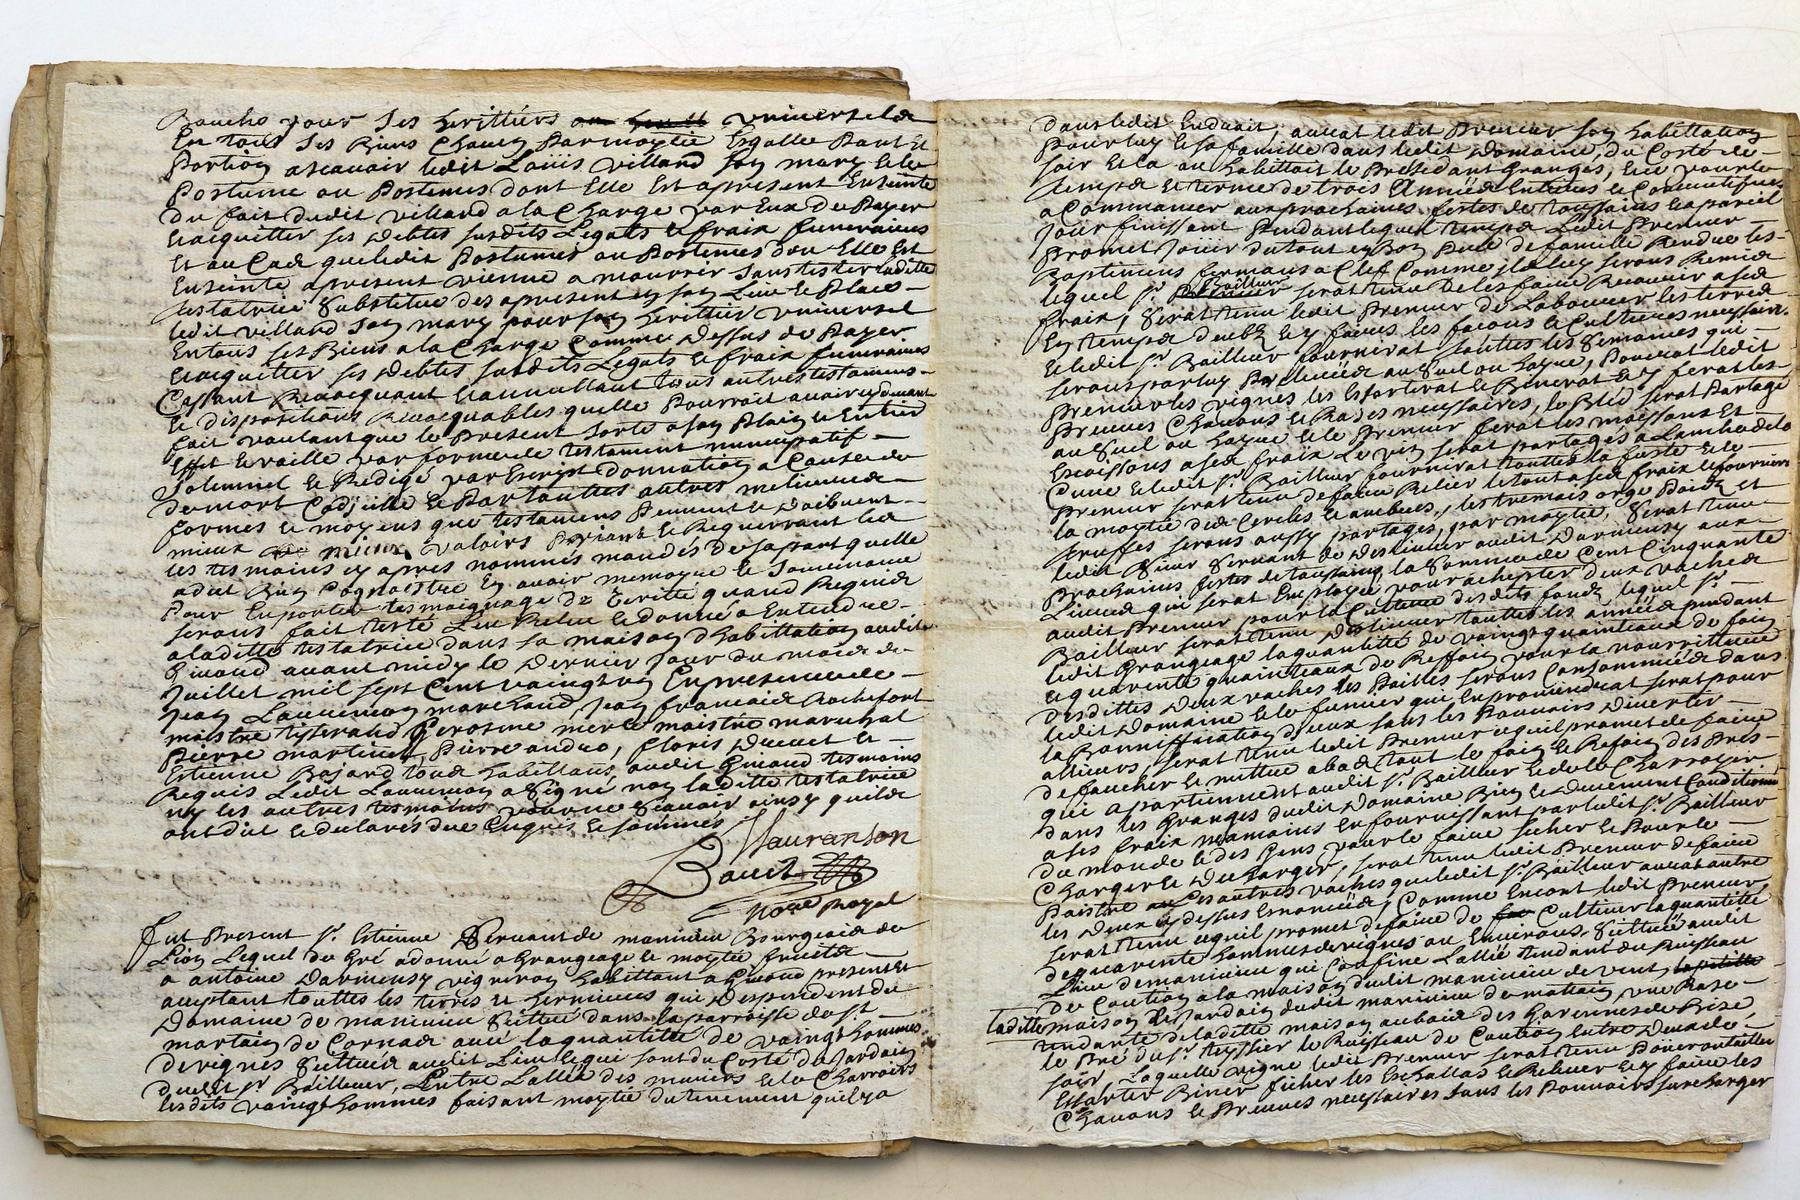 Bouche pour ses heritiers universels
En tous ses Biens Chacun Par moytie Esgalle Part Et
Portion ascavoir ledit Louis Villand son mary Et le
Postume ou Postumes dont Elle Est apresent Enseinte
Du fait dudit villand a la Charge par Eux de Payer
Et acquitter ses debtes susdits Legats et fraix funeraires
Et au Cas que ledit Postumes ou Postumes dou Elle Est
Enseinte apresent vienne a mourrir sans tister laditte
testatrice substitue des apresent en son Lieu Et Place
ledit villand son mary pour son heritier universel
En tous ses Biens a la Charge Comme dessus de Payer
Et acquitter ses debtes susdits Legats et fraix funeraires
Cassant Revocquant Et annullant tous autres testamens
Et dispositions Revocquables quelle Pourroit avoir cy devant
fait voulant que le Present sorte a son Plain Et Entier
Effet Et vaille par forme de testament nuncupatif
Solemnel Et Redigé par Escript donnation a Cause de
de mort Codicille Et Par touttes autres meilleures
formes Et moyens que testamens Peuvent Et doibvent
mieux valoirs Priant Et Requerrant les
les tesmoins cy apres nommés mandés de sa part quelle
a dit Bien Cognoistre En avoir memoyre Et souvenance
Pour En porter tesmoignage de veritté quand Requis
serons, fait Leu Relu Et donné a Entendre
a laditte testatrice dans sa maison d'habittation audit
Givord avant midy le Dernier Jour du mois de
Juillet mil sept Cent vaingt En presence de
Jean Lauranson marchand Jean francois Rochefort
maistre tisserand Gerosme merle maistre marechal
Pierre martinet, Pierre andre, floris Drevet et
Estienne Bajard tous habittans audit Givord tesmoins
Requis Ledit Lauranson a signé non laditte testatrice
ny les autres tesmoins pour ne scavoir ainsy quils
ont dit et declarés de ce Enquis Et sommés
Lauranson
nore Royal
fut Present sr. Estienne Servant de manicieu Bourgeois de
Lion Lequel de Gré a donné a Grangeage Et moytie fruits
a antoine Darmensy vigneron habittant a Givord present Et
aceptant touttes les terres Et hermiures qui Despendent du
Domaine de manicieu scittué dans la parroisse de st.
martin de Cornas avec la quantitte de vaingt hommes
de vignes scittués audit Lieu lequel sont du Costé du Jardain
dudit sr Bailleur, Entre Lallée des muriers Et le Charroirs
lesdits vaingt hommes faisant moytie du tenement quil y a
dans ledit Endroit, aurat ledit Premier son habittation
pour luy Et sa famille dans ledit Domaine, du Costé de
soir Et la ou habittoit le Precedant Granges, Et ce pour le
temps et terme de trois années Entieres et Consecutives
a Commancer aux prochaines festes de toussains Et a pareil
Jour finissant Pendant lequel temps ledit Premier
Promet jouir du tout en Bon Pere de famille Rendre les
Bastimens fermans a Clef Comme ils luy serons Remis
lequel sr. Bailleur serat tenu de les faire Recouvrir a ses
fraix, serat tenu ledit Premier de Labourer les terres
En temps deubz Et y faires les facons Et Cultures necessaires
Et ledit sr. Bailleur fournirat touttes les semances qui
serons par luy Prelevées au seul ou Layre, Pourrat ledit
Premier les vignes les Essartirat Et Binerat Et y ferat les
Preuves Chavons Et Rases necessaires, le Bled serat Partagé
au seul ou Layre Et le Premier ferat les moissons Et
Escoissons a ses fraix Le vin serat partagés a Lanche de la
Cuve Et ledit sr. Bailleur fournirat touttes la futte Et le
Premier serat tenu de faire Relier le tout a ses fraix Et fournirs
la moytie des Cercles Et ambres, les tremois orge Pois Et
truffes serons aussy partagés, par moytie, serat tenu
ledit sieur Servant de destiner audit Darmensy aux
Prochaines festes de toussains la somme de Cent Cinquante
Livres qui serat Employé pour achepter deux vaches
audit Premier pour la Culture desdits fondz, lequel sr.
Bailleur serat tenu destiner touttes les années pendant
ledit Grangeage la quantitté de vaingt quaintaux de foin
Et quarente quaintaux de Reffoin pour la nourritture
desdittes deux vaches les Pailles serons Consommées dans
ledit Domaine Et le fumier qui En proviendrat serat pour
la Bonniffication dieux sans les Pouvoirs divertir
allieurs, serat tenu ledit Premier Et quil promet de faire
de faucher Et mettre abas tout le foin Et Refoin des Pres
qui apartiennent audit sr. Bailleur Et de le Charroyer
dans les Granges dudit Domaine Bien Et deuement Conditionné
a ses fraix neamoins En fournissant par ledit sr. Bailleur
du monde Et des Gens pour le faire secher Et Pour le
Charger Et descharger, serat tenu ledit Premier de faire
Paistre les autres vaches que ledit sr. Bailleur aurat outre
les deux cy dessus Enoncées, Comme Encore ledit Premier
serat tenu Et quil promet de faire de Cultiver la quantitté
de quarente hommes de vignes ou Environs, scittués audit
Lieu de manicieu qui Confine Lallée tendant du Ruisseau
de Caution a la maison dudit manicieu de vent,
laditte maison Et Jardain dudit manicieu de matin une Rase
tendante de laditte maison au bois des Garennes de Bize,
le Pré du sr. teyssier le Ruisseau de Caution Entre deux de
soir Laquelle vigne ledit Premier serat tenu
Essarter Biner ficher les Eschallas Et Relever Et y faire les
Chavons Et Preuves necessaires sans les Pouvoirs surcharger